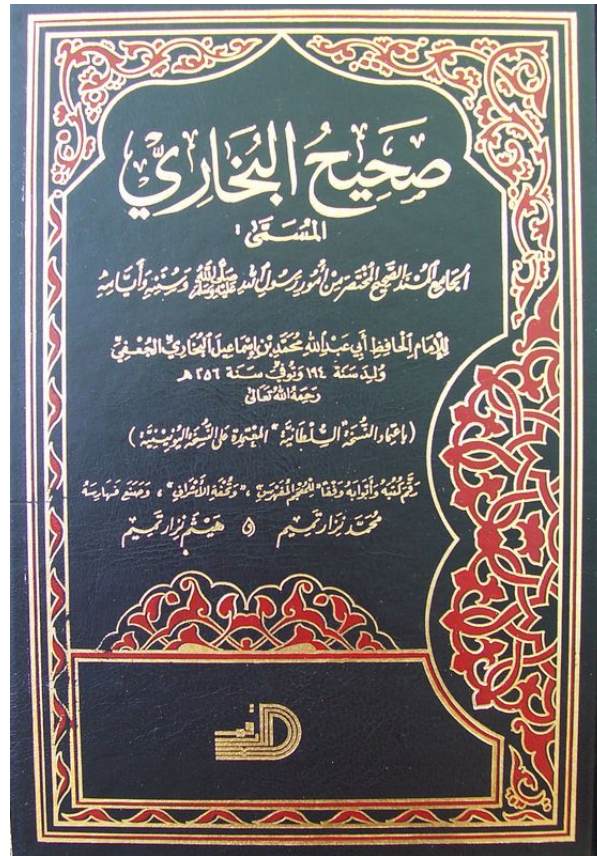 صَحِيحُ البُخَارِيِّ
المُسَمَّى :
الجَامِعُ المُسْنَدُ الصَّحِيحُ المُخْتَصَرُ مِنْ أُمُورِ رَسُولِ اللهِ ﷺ وَسُنَنِهِ وَأَيَّامِهِ
لِلإِمَامِ الْحَافِظِ أَبِي عَبْدِ اللهِ مُحَمَّدِ بْنِ إِسْمَاعِيلَ الْبُخَارِيِّ الْجُعْفِيِّ
وُلِدَ سَنَة ١٩٤ وَتُوُفِّيَ سَنَة ٢٥٦ هـ
رَحِمَهُ اللهُ تَعَالَى
(بِاعْتِمَادِ النُّسْخَةِ "السُّلْطَانِيَّة" المُعْتَمَدَةِ عَلَى النُّسْخَةِ الْيُونِينِيَّةِ)
رَقَّمَ كُتُبَهُ وَأَبْوَابَهُ وَفْقًا "لِلْمُعْجَمِ المُفَهْرَسِ" ، "وَتُحْفَةِ الأَشْرَافِ" ، وَصَنَعَ فَهَارِسَهُ
مُحَمَّد نِزَار تَمِيم و هَيْثَم نِزَار تَمِيم